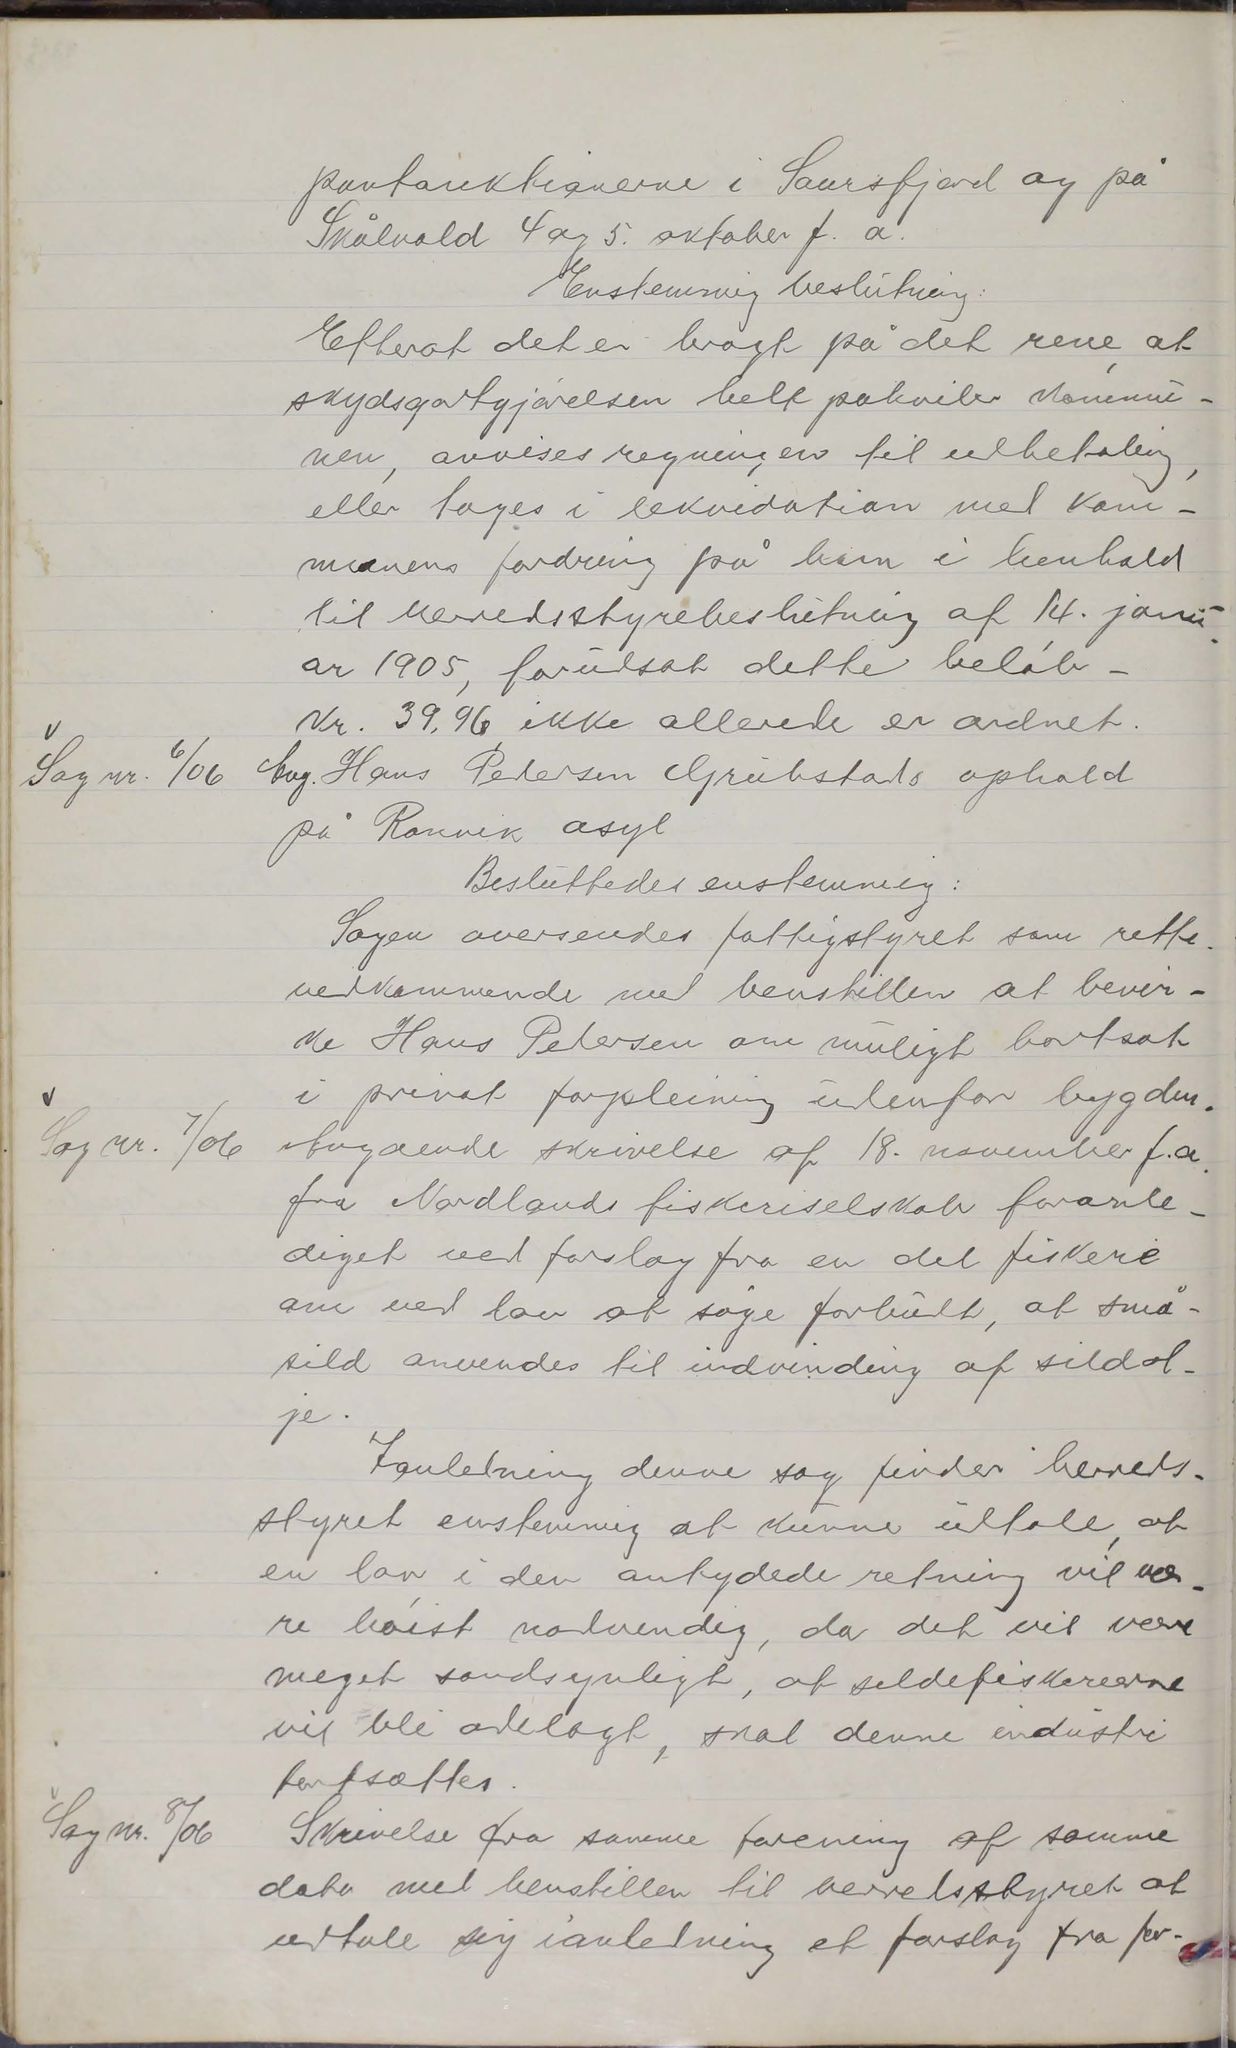 pantauktionerne i Saursfjord og på
Skålvold 4 og 5. oktober f. a.
Enstemmig beslutning:
Efterat det er bragt på det rene, at
skydsgodtgjörelsen helt påhviler kommu-
nen, anvises regningen til udbetaling,
eller tages i lekvidation med kom-
munens fordring på ham i henhold
til herredsstyrebeslutning af 14. janu-
ar 1905, forudsat dette belöb -
kr. 39,96, ikke allerede er ordnet.
Sag nr. 6/06 Ang. Hans Pedersen Grubstads ophold
på Rönvik asyl
Besluttedes enstemmig:
Sagen oversendes fattigstyret som rette
vedkommende med henstillen at bevir-
ke Hans Pedersen om muligt bortsat
i privat forpleining udenfor bygden.
Sag nr. 7/06 Angaaende skrivelse af 18. november f.a.
fra Nordlands fiskeriselskab foranle-
diget ved forslag fra en del fiskere
om ved lov at söge forbudt, at små-
sild anvendes til indvinding af sildol-
je.
Ianledning denne sag finder herreds-
styret enstemmig at kunne udtale, at
en lov i den antydede retning vil væ-
re höist nödvendig, da det vil være
meget sandsynligt, at sildefiskerierne
vil bli ödelagt, skal denne industri
fortsættes.
Sag nr. 8/06 Skrivelse fra samme forening af samme
dato med henstillen til herredsstyret at
udtale sig ianledning et forslag fra for-